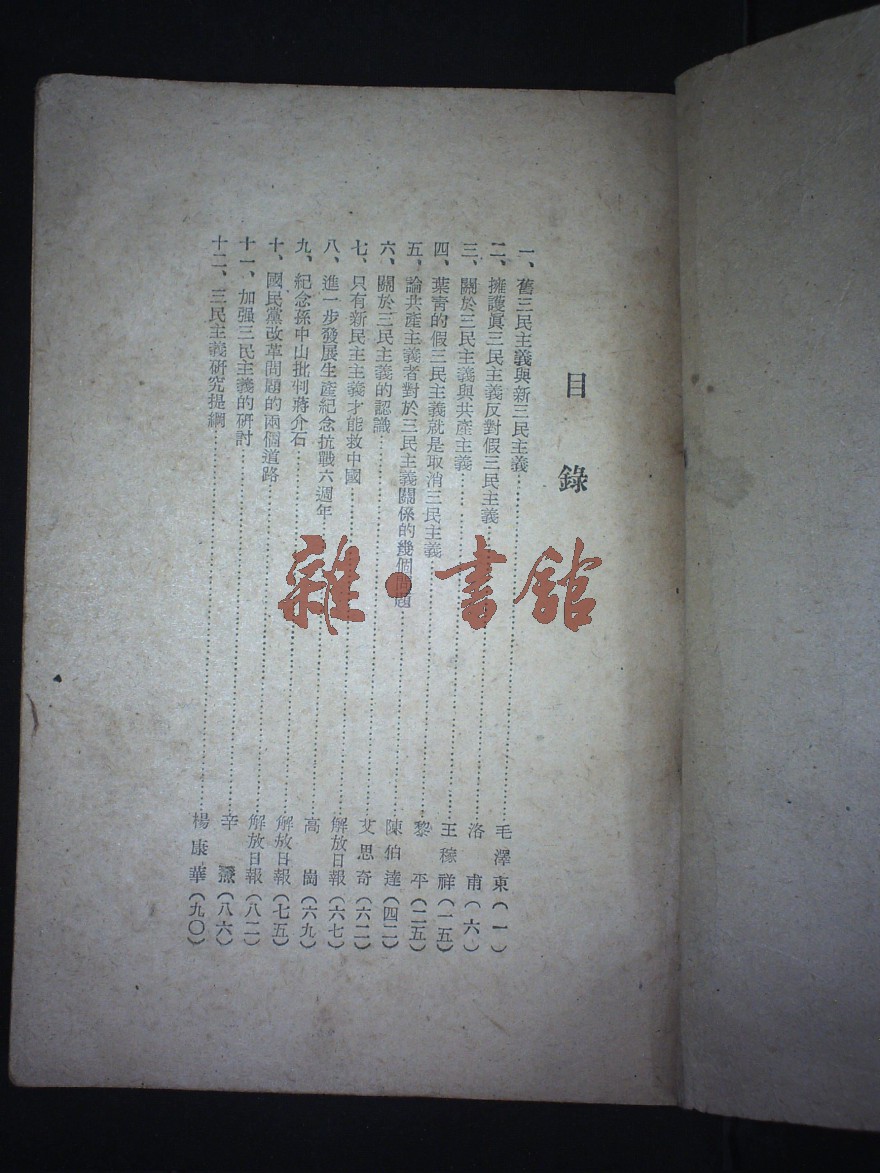 目錄
一、舊三民主義與新三民主義……毛澤東(一)
二、擁護眞三民主義反對假三民主義……洛甫(六)
三、關於三民主義與共產主義……王稼祥(一五)
四、葉靑的假三民主義就是取消三民主義……黎平(二五)
五、論共產主義者對於三民主義關係的幾個問題……陳伯達(四二)
六、關於三民主義的認識……艾思奇(六二)
七、只有新民主主義才能救中國……解放日報(六七)
八、進一步發展生產紀念抗戰六週年……高崗(六九)
九、紀念孫中山批判蔣介石……解放日報(七五)
十、國民黨改革問題的兩個道路……解放日報(八二)
十一、加强三民主義的研討……辛(八六)
十二、三民主義研究提綱……楊康華(九〇)
雜·書館